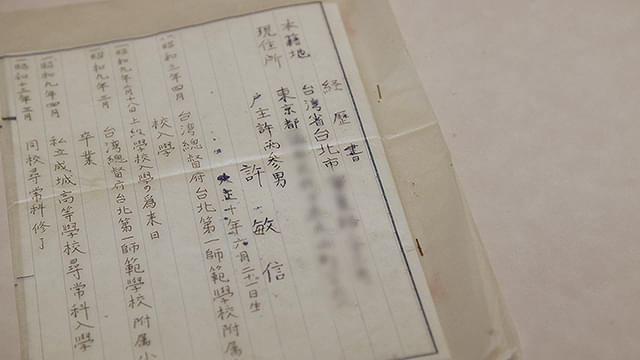 経歴書
本籍地 台湾省台北市
現住所 東京都
戸主許丙参男
許敏信
大正十年六月二十一日生
一昭和三年四月 台湾總督府台北第一師範學校附属
校入學
一昭和九年月十八日 上級學校入學の為来日
一昭和九年三月 台湾總督府台北第一師範學校附属小
卒業
一昭和九年四月 私立成城高等學校尋常科入學
一昭和十三年三月 同校尋常科修了